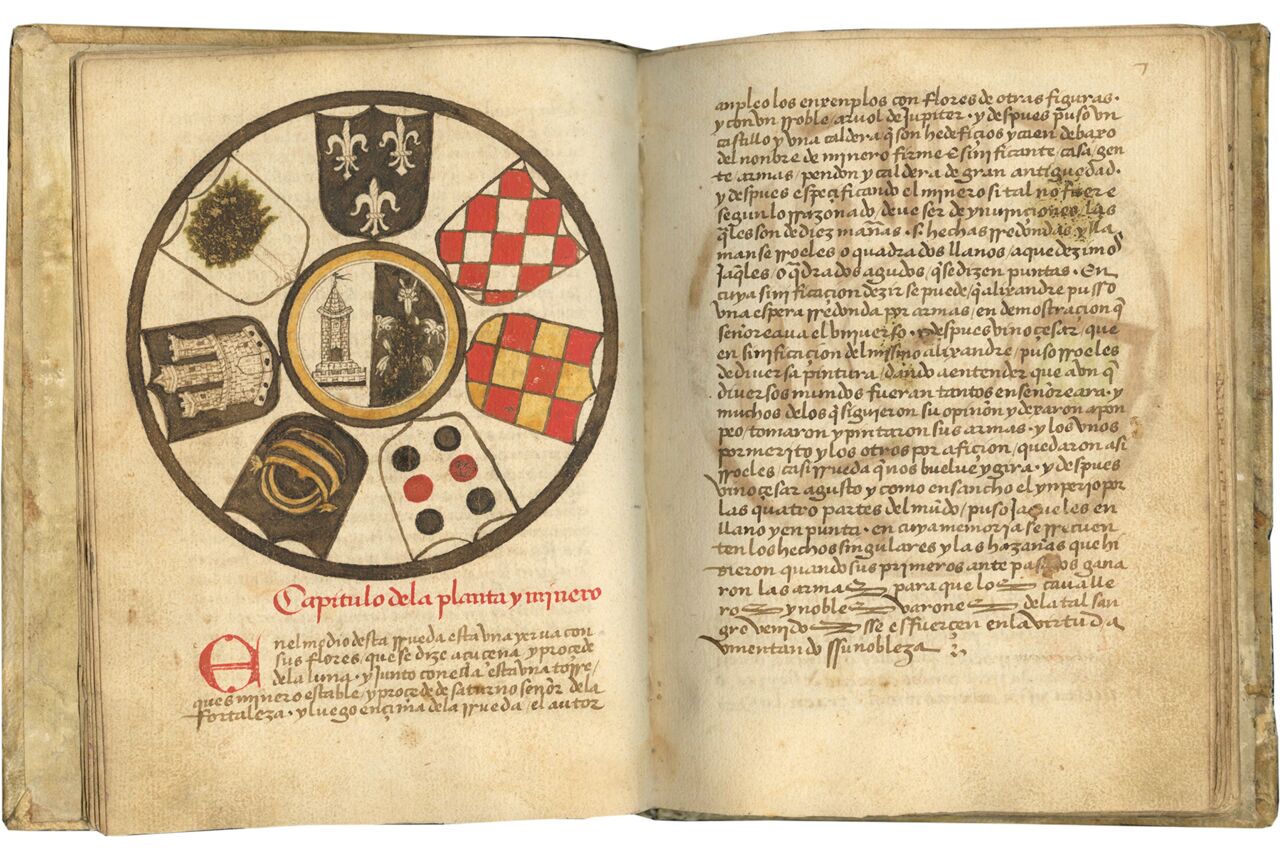 Capitulo dela planta y minero
E nel medio desta rrueda esta vna yerua con
sus flores, que se dize açucena, y procede
dela luna. y junto con ella esta vna torre,
ques minero estable, y procede de saturno señor dela
fortaleza. y luego ençima dela rrueda, el autor
7
anpleo los enxenplos con flores de otras figuras.
y con vn rroble, aruol de Jupiter. y despues puso vn
castillo y vna caldera, q̃ son hedefiçios y caen debaxo
del nonbre de minero firme E sinificante, casa, gen
te armas, pendon y caldera de gran antiguedad.
y despues espeçificando el minero si tal no fuere
segun lo rrazonado, deue ser de ynuinçiones, las
q̃les son de diez mañas. s. hechas rredondas, y lla
manse rroeles, o quadrados llanos, a que dezimos
Jaq̃les, o q̃drados agudos, q̃ se dizen puntas. En
cuya sinificaçion dezir se puede, q̃ alixandre pusso
vna espera rredonda por armas, en demostraçion q̃
señoreaua el vniuerso. y despues vino çesar, que
en sinificaçion del mismo alixandre, puso rroeles
de diuersa pintura, dando a entender que aun q̃
diuersos mundos fueran tantos enseñoreara. y
muchos delos q̃ siguieron su opinion y dexaron a pon
peo, tomaron y pintaron sus armas. y los vnos
por merito y los otros por afiçion, quedaron asi
rroeles, casi rrueda q̃ nos buelue y gira. y despues
vino çesar agusto y como ensancho el ynperio por
las quatro partes del mũdo, puso Jaqueles en
llano y en punta. en cuya memoria se rrecuen
ten los hechos singulares y las hazañas que hi
zieron quando sus primeros ante pasados gana
ron las armas para que los caualle
ros y nobles varones dela tal san
gre venidos sse esfuerçen en la virtud a
vmentando ssu nobleza